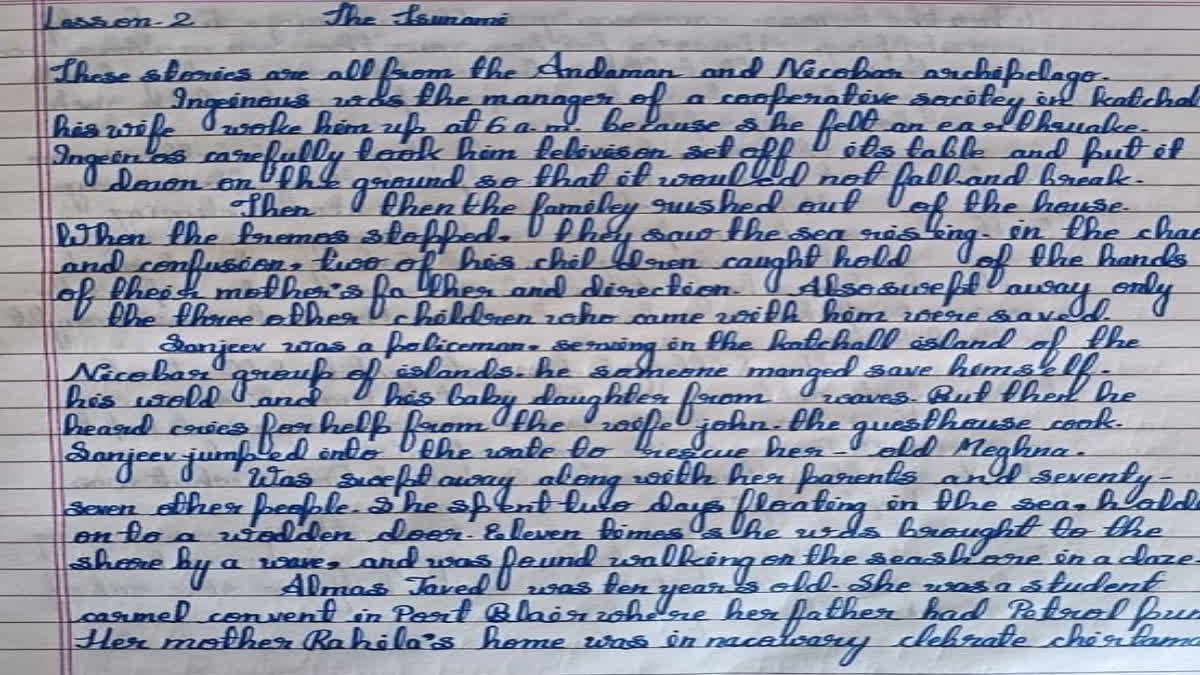 Lesson-2 The Tsunami
These stories are all from the Andaman and Nicobar archipelago.
Ingeinous was the manager of a cooperative socitey in katchal
his wife woke him up at 6 a.m. because she felt an earthquake.
Ingeinos carefully took him televison set off its table and put it
down on the ground so that it would not fall and break.
Then then the familey rushed out of the house.
When the tremos stopped. they saw the sea rising. in the chao
and confusion, two of his children caught hold of the hands
of their mother's father and direction. Also swept away only
the three other children who came with him were saved.
Sanjeev was a policeman, serving in the katchall island of the
Nicobar group of islands. he someone manged save himself.
his and his baby daughter from waves. But then he
heard cries for help from the wife john. the guesthouse cook.
Sanjeev jumped into the wate to rescue her- old Meghna.
Was swept away along with her parents and seventy-
seven other people. She spent two days floating in the sea, hold
onto a wodden door. Eleven times she was brought to the
shore by a wave, and was found walking on the seashore in a daze
Almas Javed was ten years old. She was a student
carmel convent in Port Blair where her father had Petrol pum
Her mother Rahila's home was in clebrate